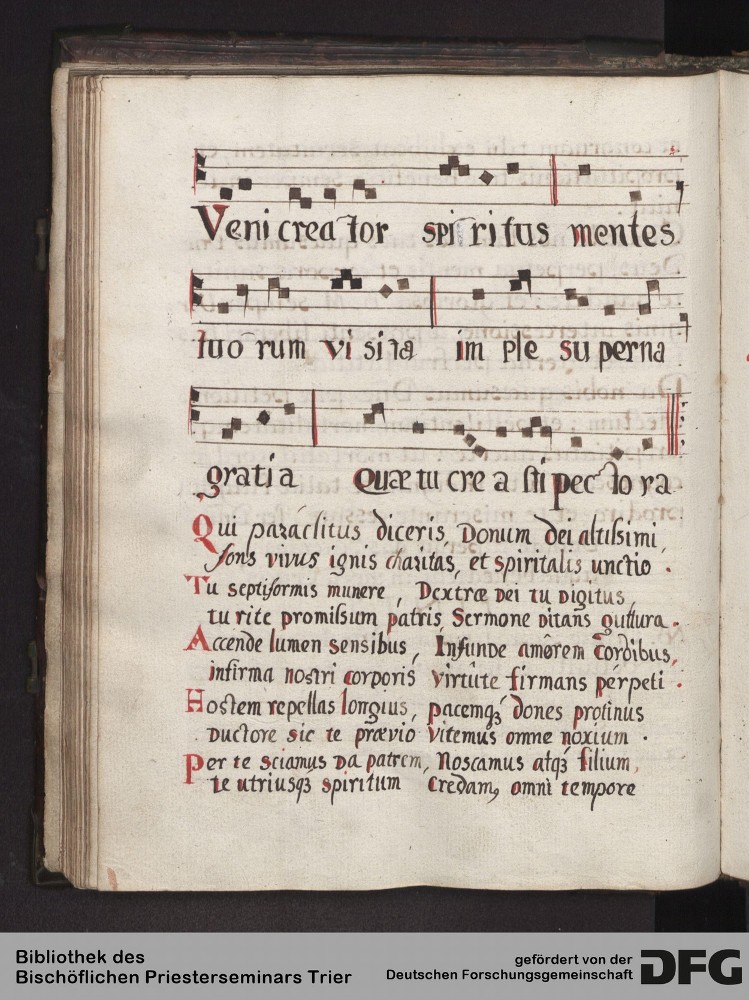 Veni creator spiritus mentes
tuorum visita imple superna
gratia Quæ tu creasti pectora
Qui paraclitus diceris, Donum dei altissimi,
fons vivus ignis charitas, et spiritalis unctio.
Tu septiformis munere, Dextræ dei tu digitus,
tu rite promissum patris, Sermone ditans guttura.
Accende lumen sensibus, Infunde amôrem cordibus,
infirma nostri corporis virtûte firmans pérpeti.
Hostem repellas longius, pacemqȝ dones protinus
Ductore sic te prævio vitemus omne noxium.
Per te sciamus da patrem, Noscamus atqȝ filium,
te utriusqȝ spiritum Credam9 omni tempore
Bibliothek des
Bischöflichen Priesterseminars Trier
gefördert von der
Deutschen Forschungsgemeinschaft
DFG